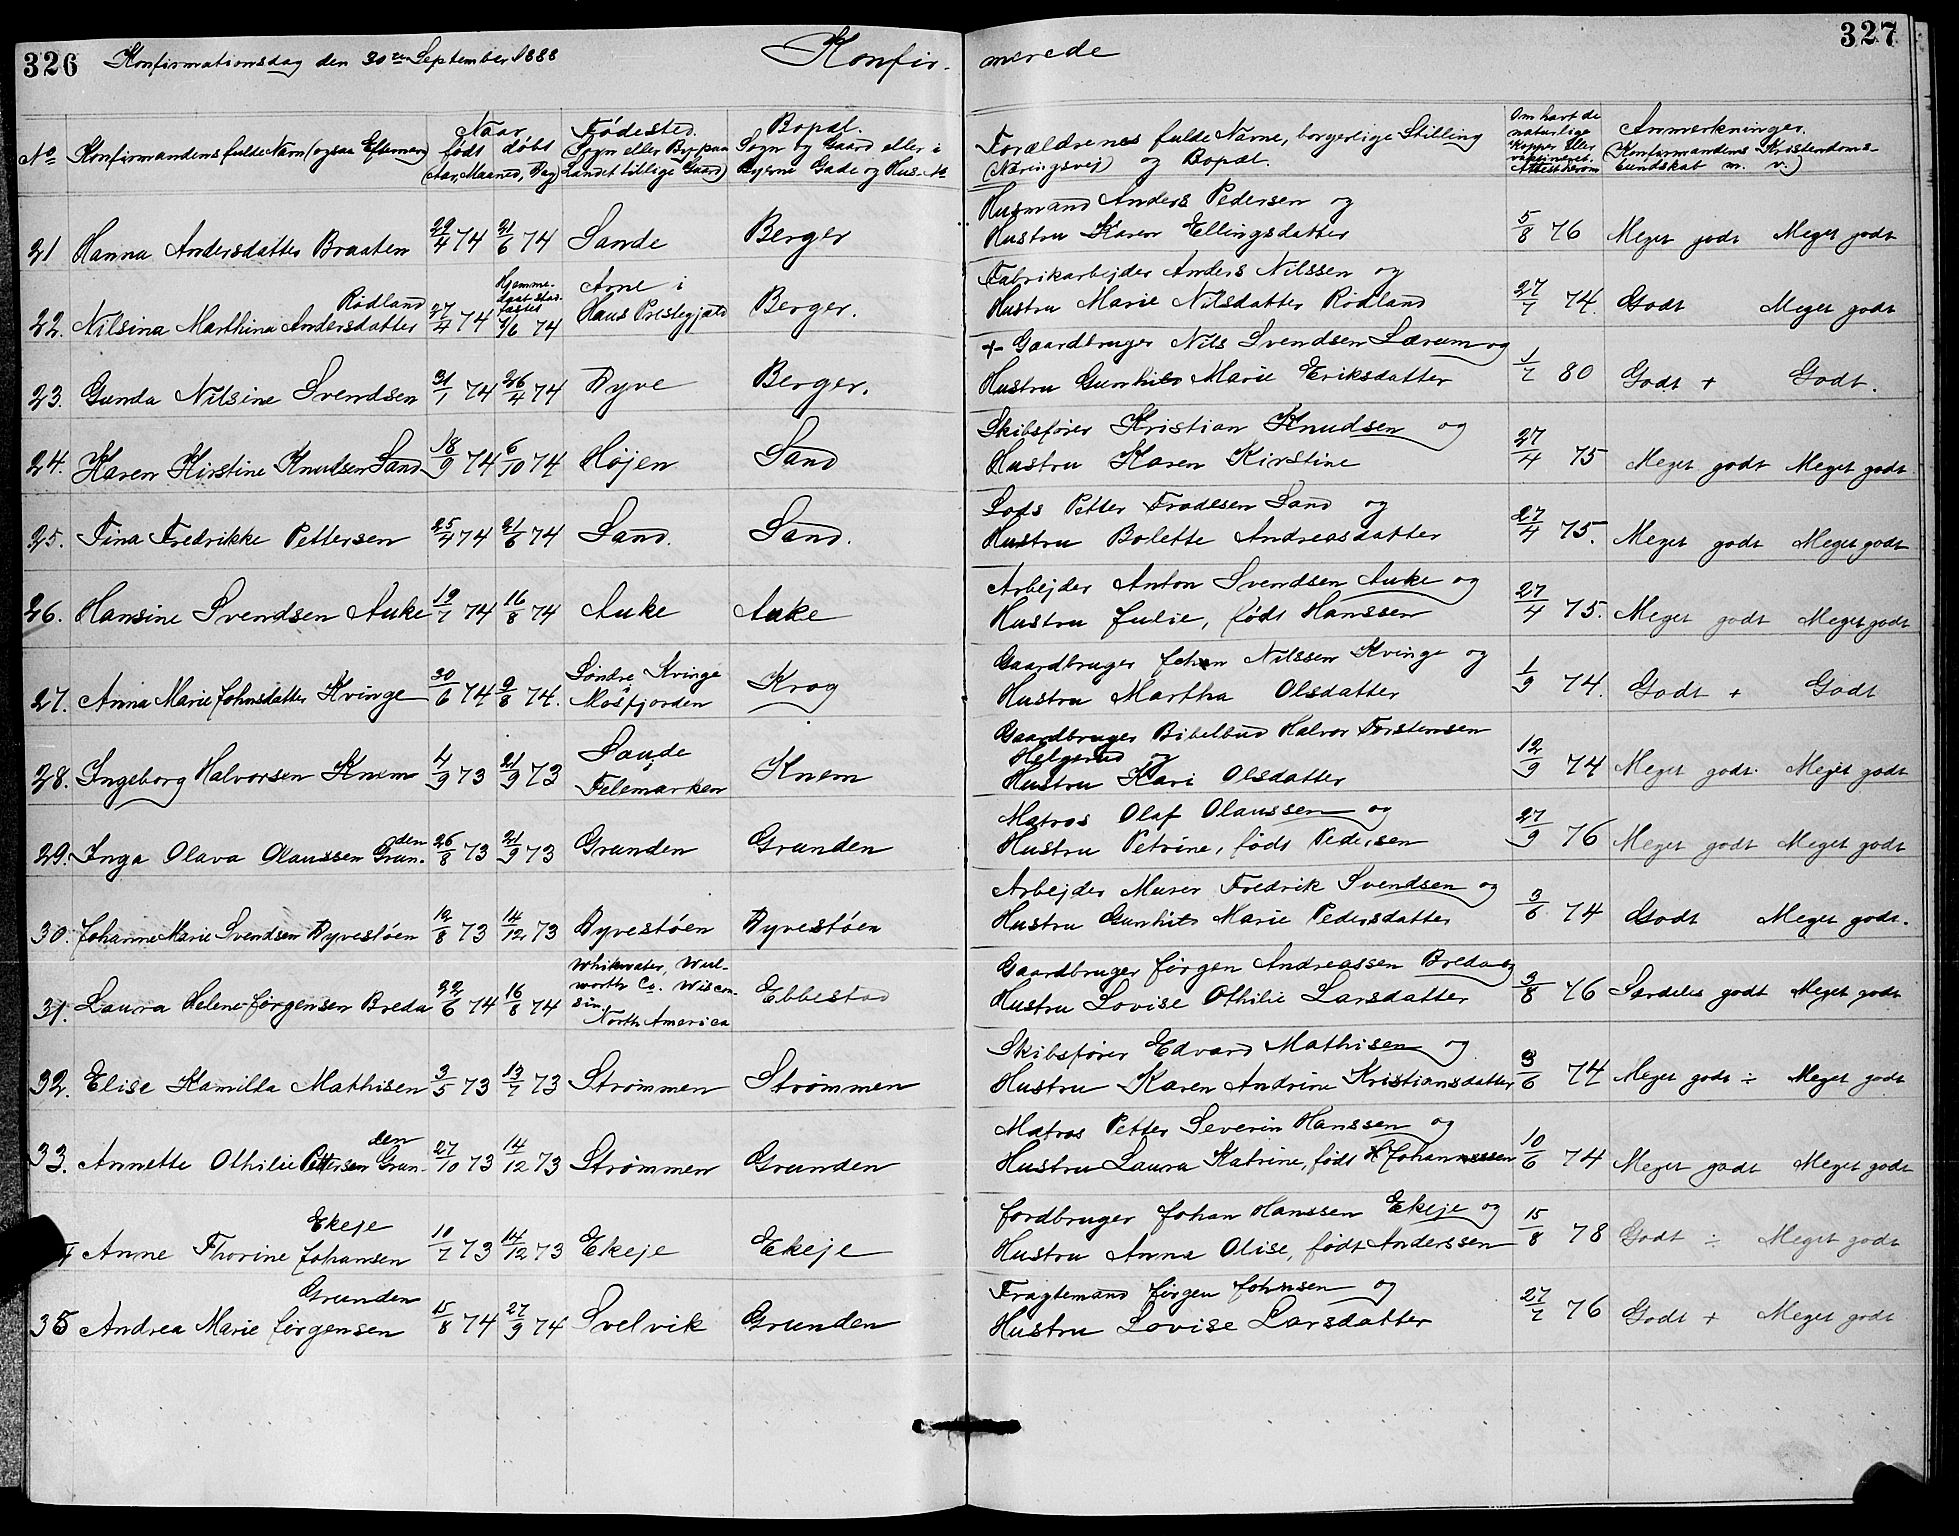 326 Konfirmationsdag den 30te September 1888 Konfir- merede 327
No Konfirmandens fulde Navn (ogsaa Efternavn) Naar født døbt (Aar, Maaned, Dag) Fødested. (Sogn eller By, paa Landet tillige Gaard) Bopæl. Sogn og Gaard eller i Byerne Gade og Hus-No Forældrenes fulde Navne, borgerlige Stilling (Næringsvej) og Bopæl. Om havt de naturlige Kopper eller vaccineret. Attest derom Anmerkninger. (Konfirmandens Kristendoms-kundskab m. v.)
21 Hanna Andersdatter Braaten 29/4 74 21/6 74 Sande Berger Husmand Anders Pedersen og
Hustru Karen Ellingsdatter 5/8 76 Meget godt Meget godt
22. Nilsina Marthina Andersdatter Rødland 27/4 74 Hjemme-døbt 7/6 74 Arne i Haus Prestegjæld Berger. Fabrikarbejder Anders Nilssen og
Hustru Marie Nilsdatter Rødland 27/7 74. Godt Meget godt
23. Gunda Nilsine Svendsen 31/1 74 26/4 74 Dyve Berger. + Gaardbruger Nils Svendsen Lærum og
Hustru Gunhild Marie Eriksdatter 1/7 80 Godt + Godt.
24. Karen Kirstine Knudsen Sand 18/9 74 6/10 74 Højen Sand Skibsfører Kristian Knudsen og
Hustru Karen Kirstine 27/4 75 Meget godt Meget godt
25. Tina Fredrikke Pettersen 25/4 74 21/6 74 Sand. Sand. Lods Petter Fradesen Sand og
Hustru Bolette Andreasdatter 27/4 75. Meget godt Meget godt
26. Hansine Svendsen Auke 19/7 74 16/8 74 Auke Auke Arbejder Anton Svendsen Auke og
Hustru Julie, født Hanssen 27/4 75. Meget godt Meget godt
27. Anna Marie Johnsdatter Kvinge 30/6 74 9/8 74. Søndre Kvinge Mosfjorden Krog Gaardbruger John Nilssen Kvinge og
Hustru Martha Olsdatter 1/9 74. Godt + Godt
28. Ingeborg Halvorsen Knem 4/9 73 21/9 73 Saude Telemarken Knem Gaardbruger Bibelbud Halvor Torstensen
Helgerud og
Hustru Kari Olsdatter 12/9 74 Meget godt. Meget godt
29. Inga Olava Olaussen Grunden 26/8 73 21/9 73 Grunden Grunden Matros Olaf Olaussen og
Hustru Petrine, født Pedersen 27/9 76 Meget godt Meget godt
30. Johanne Marie Svendsen Dyvestøen 12/8 73 14/12 73 Dyvestøen Dyvestøen Arbejder Murer Fredrik Svendsen og
Hustru Gunhild Marie Pedersdatter 3/6 74 Godt Meget godt.
31. Laura Helene Jørgensen Breda 22/6 74 16/8 74 Whitewater, Wul-worth Co. Wiscon-sin, North America Ebbestad Gaardbruger Jørgen Andreassen Breda og
Hustru Lovise Othilie Larsdatter 3/8 76 Særdeles godt Meget godt
32. Elise Kamilla Mathisen 3/5 73 13/7 73 Strømmen Strømmen Skibsfører Edvard Mathisen og
Hustru Karen Andrine Kristiansdatter 3/6 74 Meget godt ÷ Meget godt
33. Annette Othilie Pettersen Grunden 27/10 73 14/12 73 Strømmen Grunden Matros Petter Severin Hanssen og
Hustru Laura Katrine, født Johannessen 10/6 74 Meget godt Meget godt
4 Anne Thorine Johansen Ekeje 10/7 73 14/12 73 Ekeje Ekeje Jordbruger Johan Hanssen Ekeje og
Hustru Anna Olise, født Anderssen 15/8 78 Godt ÷ Meget godt
35 Andrea Marie Jørgensen Grunden 15/8 74 27/9 74 Svelvik Grunden Fragtemand Jørgen Johnsen og
Hustru Lovise Larsdatter 27/7 76 Godt + Meget godt